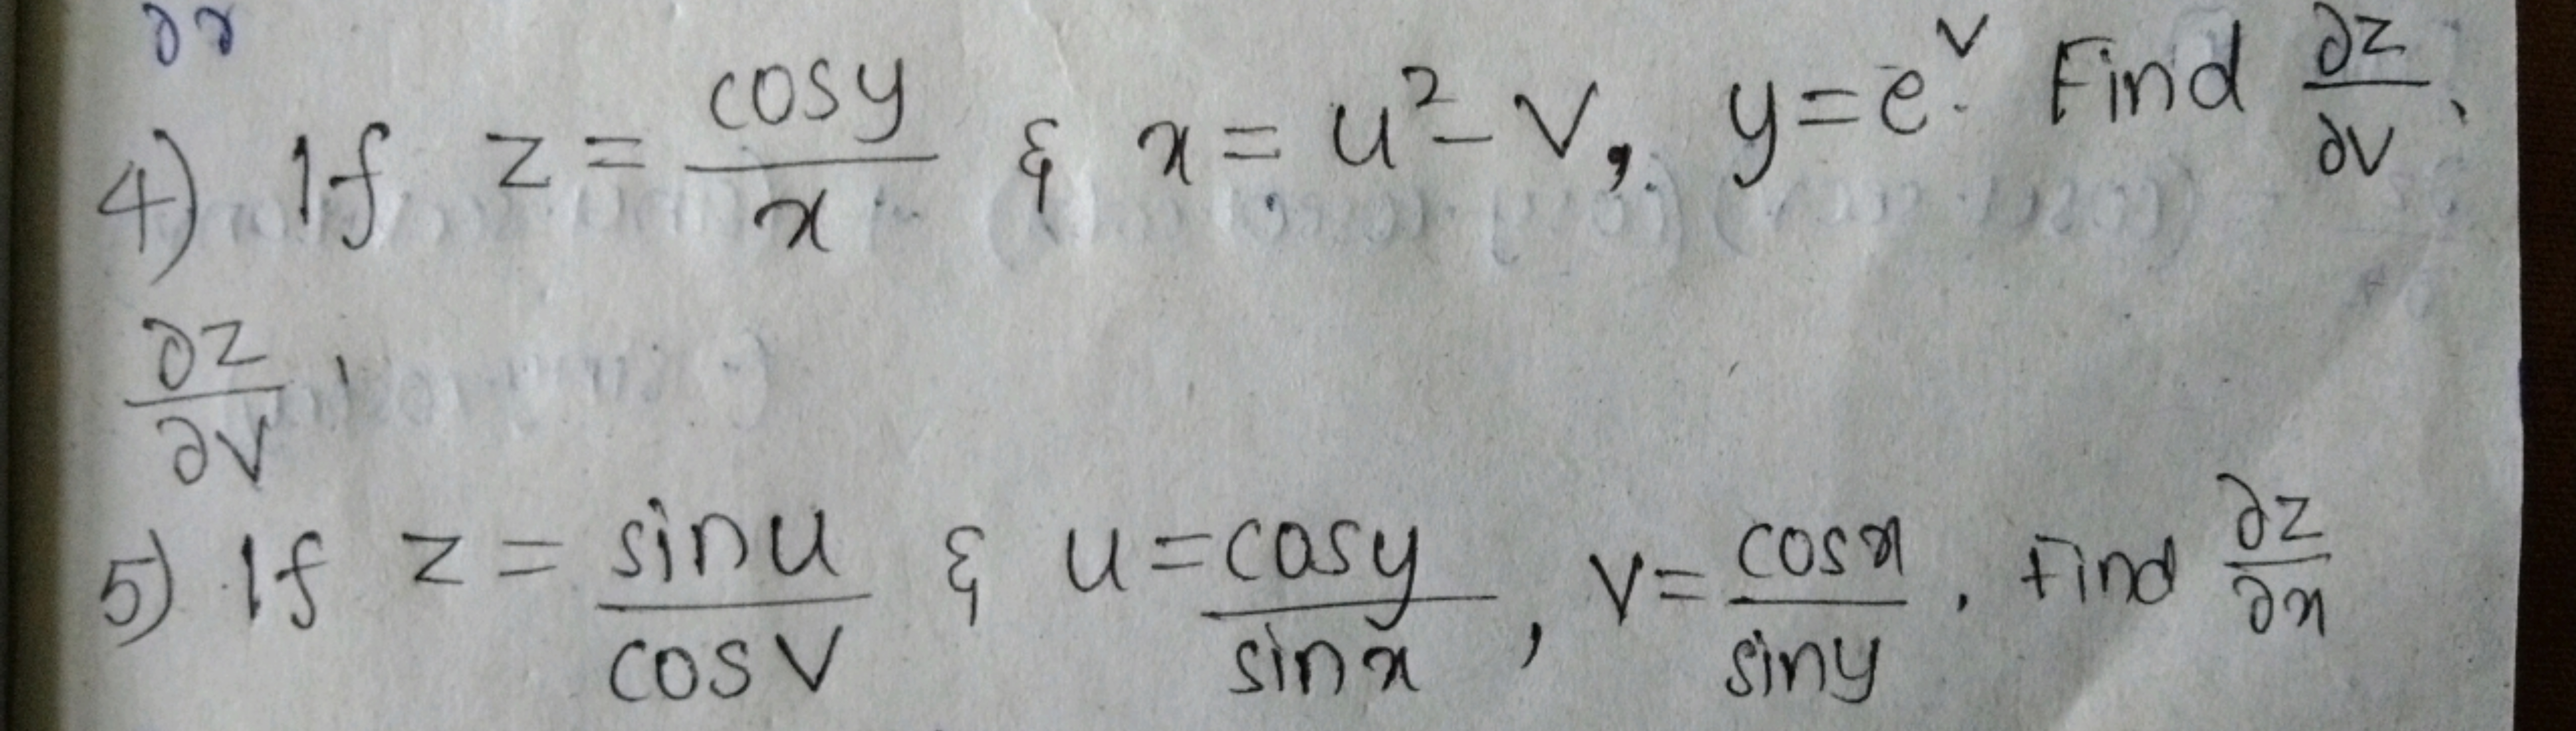 ∂x
4) If z = cosy/x & x = u² - v, y = e^v. Find ∂z/∂v,
∂z/∂v.
5) If z = sinu/cosv & u = cosy/sinx, v = cosx/siny. Find ∂z/∂x